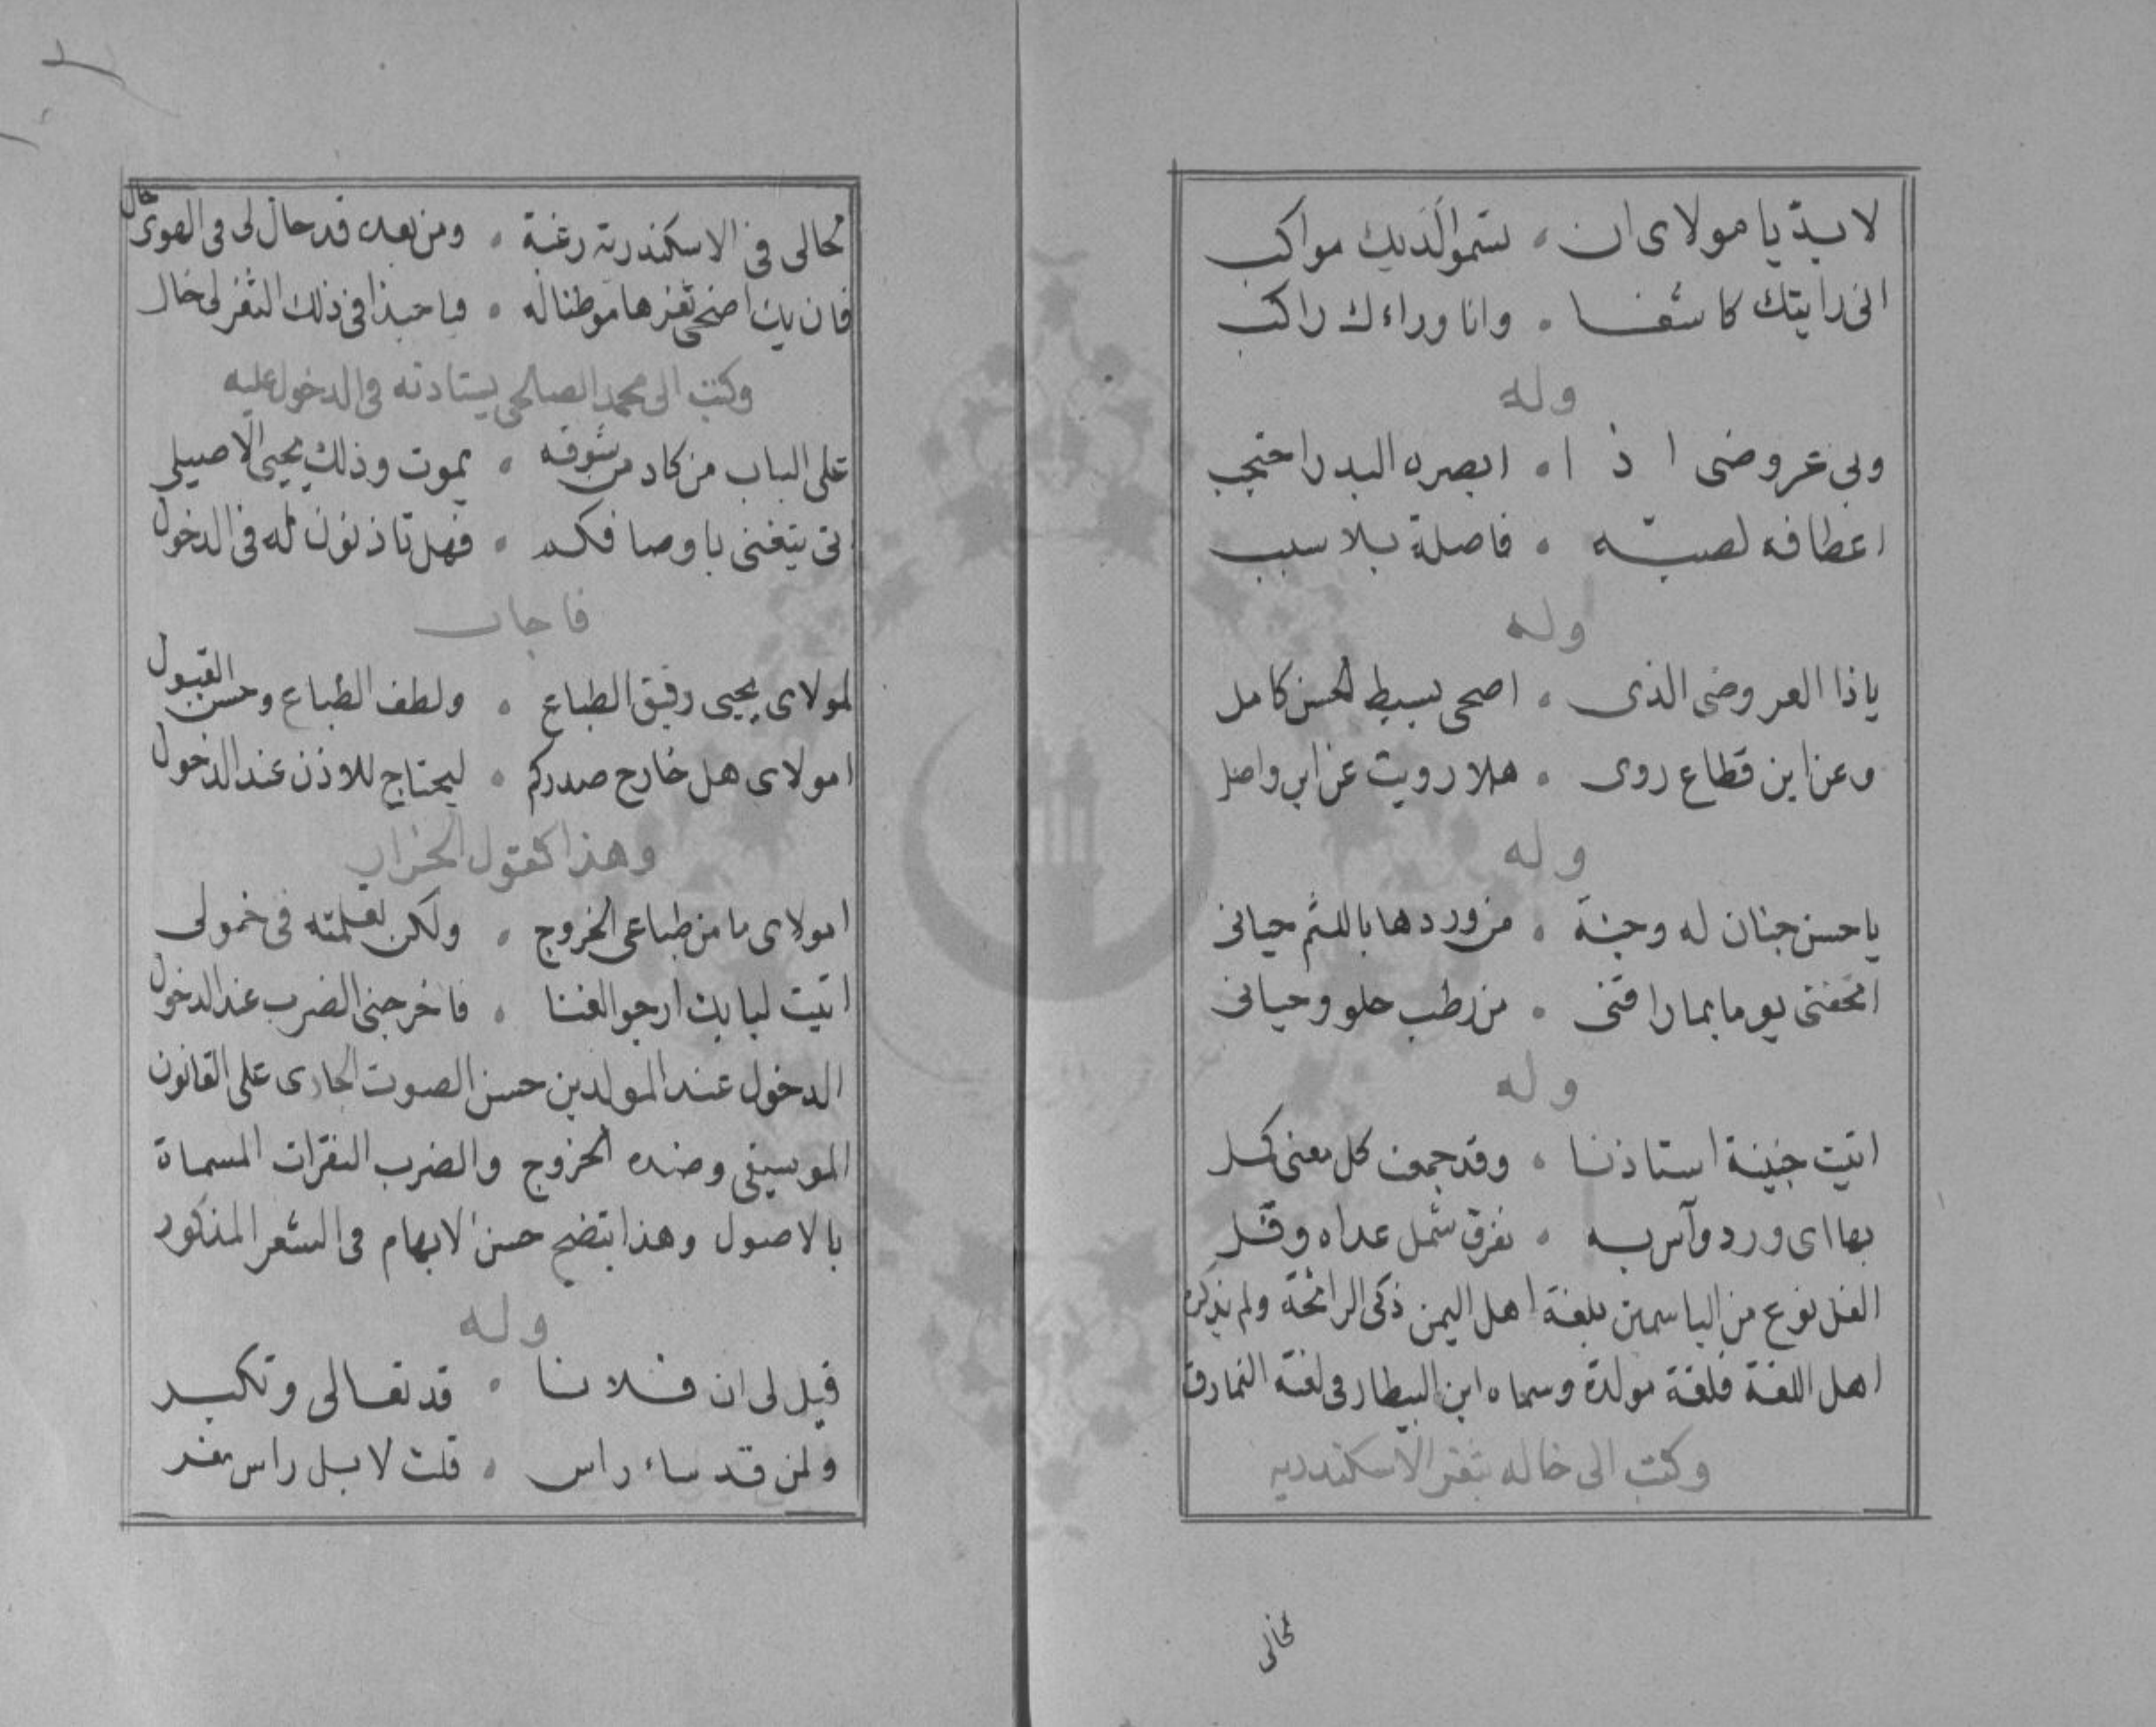 لا بدّ يا مولاى ان ۰ تسموا لديك مواكب
انى رايتك كاشفا ۰ وانا وراءك راكب
وله
وبى عروضى اذا ۰ ابصره البدر احتجب
اعطافه لصبّه ۰ فاصلة بلا سبب
وله
ياذا العروضى الذى ۰ اضحى بسيط الحسن كامل
وعن ابن قطاع روى ۰ هلا رويت عن ابن واصل
وله
يا حسن جنان له وجنة ۰ من وردها باللثم حيانى
اتحفنى يوما بما راقنى ۰ من رطب حلو وحيانى
وله
اتيت جنينة استاذنا ۰ وقد جمعت كل معنى كمل
بها اى ورد وآس به ۰ تفرق شمل عداه وفل
الفل نوع من الياسمين بلغة اهل اليمن ذكى الرائحة ولم يذكره
اهل اللغة فلغة مولدة وسماه ابن البيطار فى لغته النمارق
وكتب الى خاله بثغر الاسكندرية
فحالى
فحالى فى الاسكندرية رغبة ۰ ومن بعده قد حال لى فى الهوى حال
فان يك اضحى ثغرها موطنا له ۰ فيا حبذا فى ذلك الثغر لى خال
وكتب الى محمد الصالحى يستاذنه فى الدخول عليه
على الباب من كاد من شوقه ۰ يموت وذلك يحيى الاصيلى
اتى يتغنى باوصافكم ۰ فهل تاذنون له فى الدخول
فاجاب
لمولاى يحيى رقيق الطباع ۰ ولطف الطباع وحسن القبول
امولاى هل خارج صدركم ۰ ليحتاج للاذن عند الدخول
وهذا كقول الجزار
امولاى ما من طباعى الخروج ۰ ولكن تعلمته فى خمولى
اتيت لبابك ارجو الغنا ۰ فاخرجنى الضرب عند الدخول
الدخول عند المولدين حسن الصوت الجارى على القانون
الموسيقى وضده الخروج والضرب النقرات المسماة
بالاصول وهذا يتضح حسن الايهام فى الشعر المذكور
وله
قيل لى ان فلانا ۰ قد تعالى وتكبر
ولمن قد ساء راس ۰ قلت لا بل راس